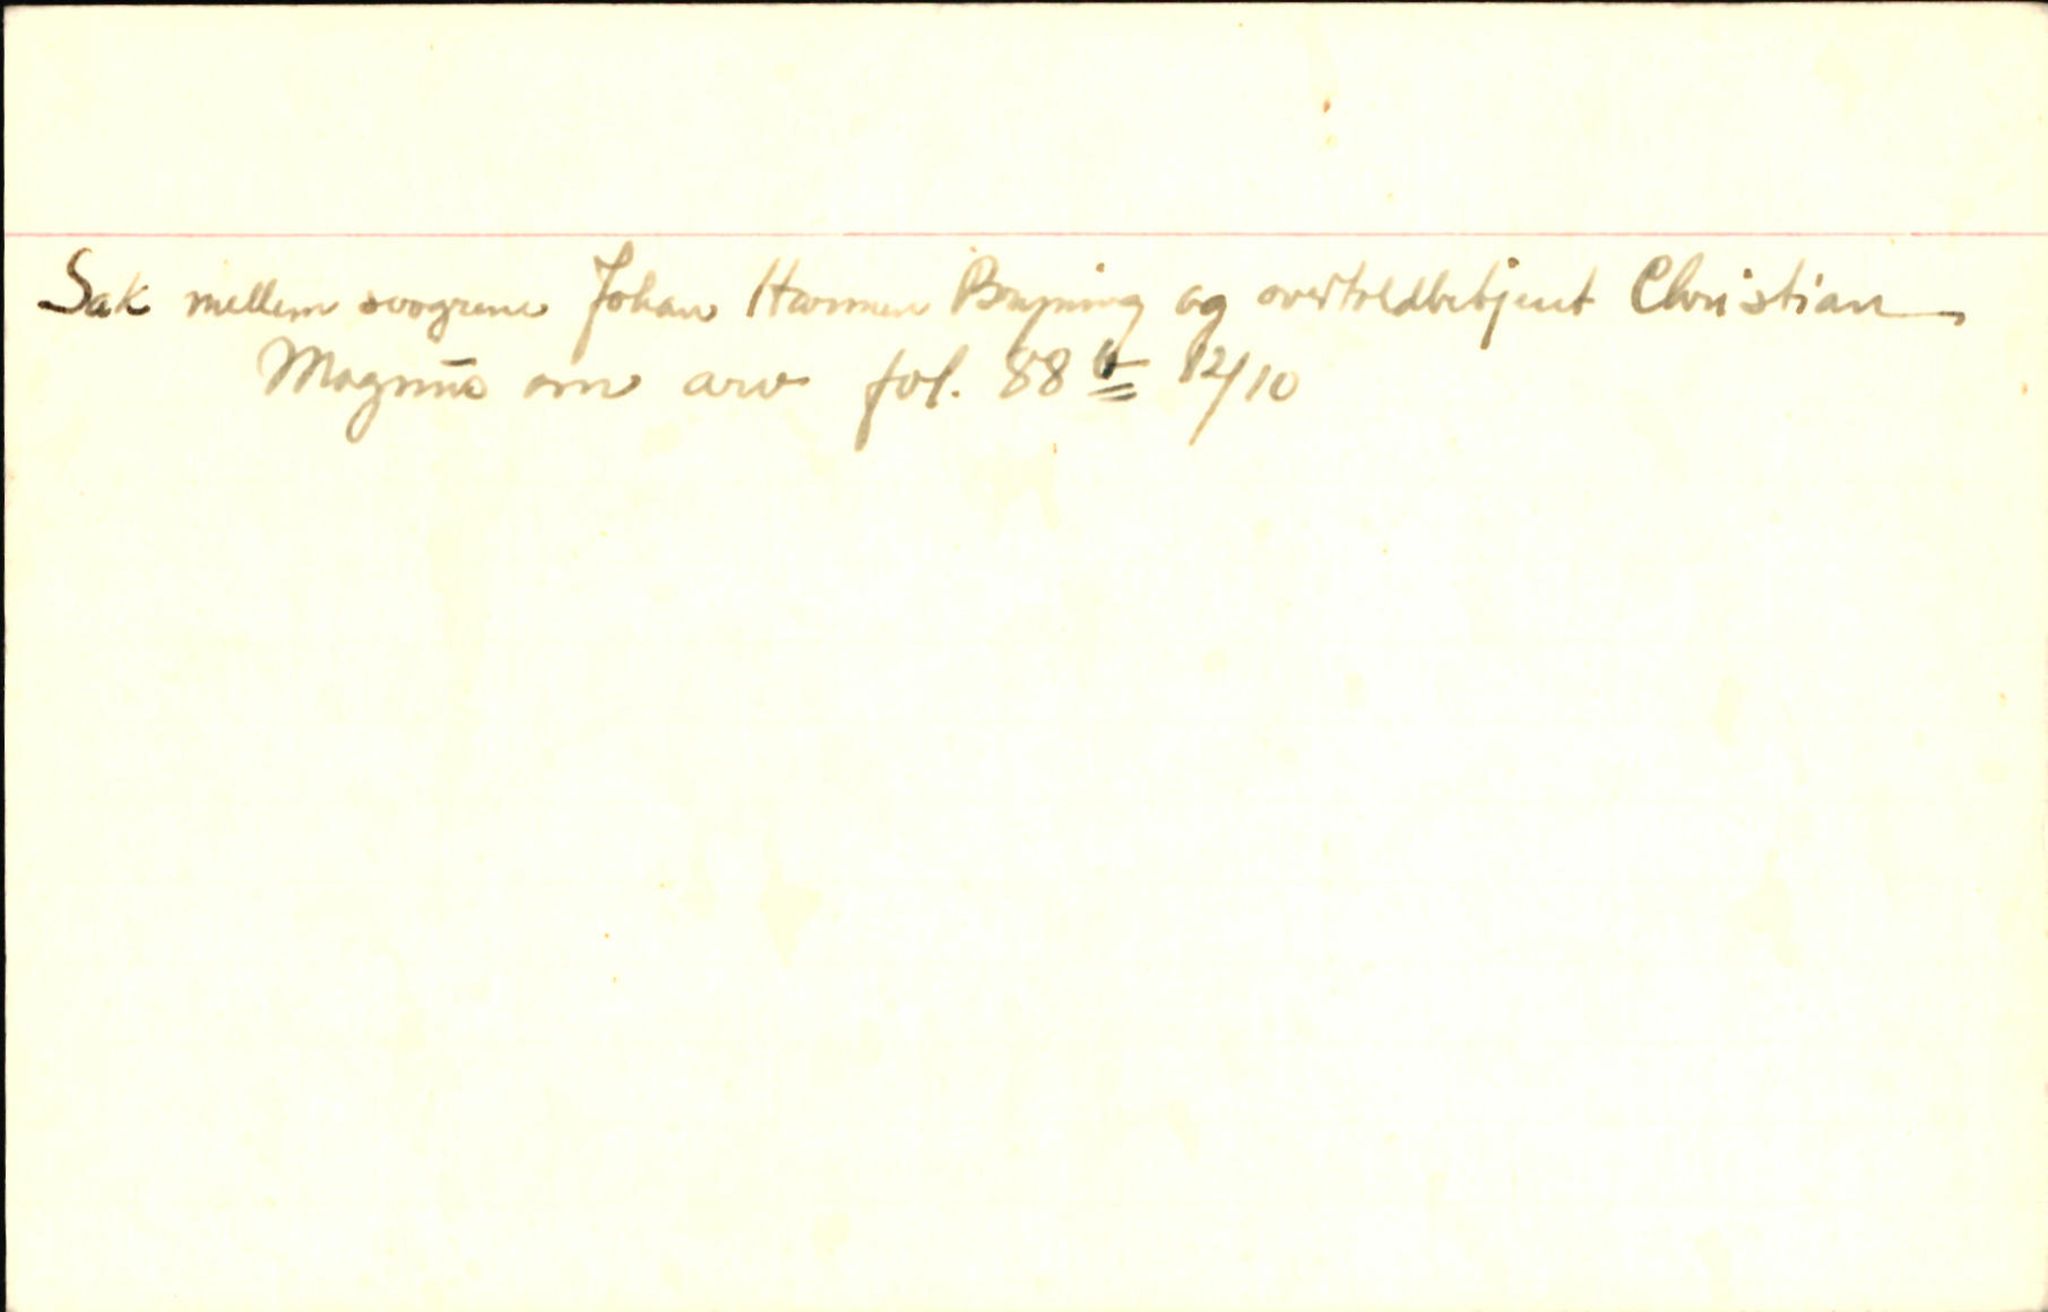 Sak mellem svogrene Johan Harmen Bryning og overtoldbetjent Christian
Magnus om arv fol. 88 b 12/10